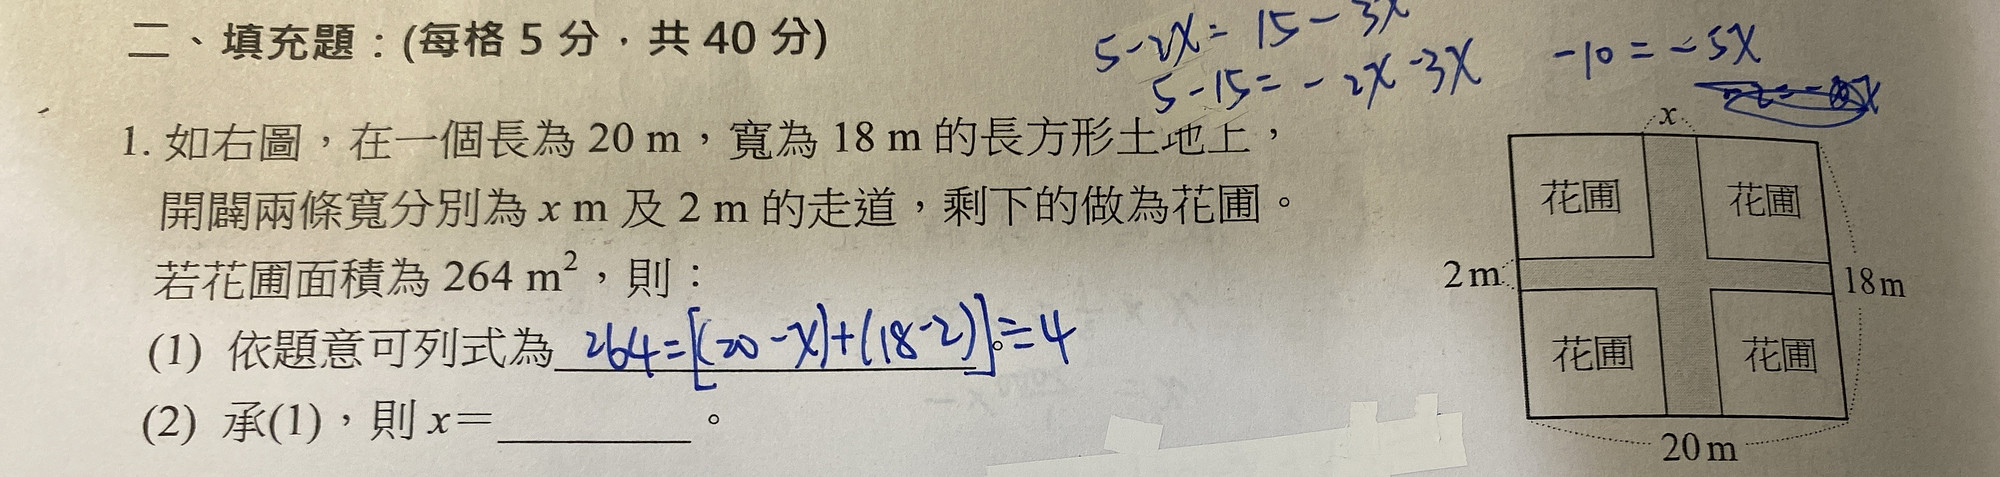 二、填充題：(每格 5 分．共 40 分)
5-2x= 15-3x
5-15=-2x-3x
-10=-5x
1. 如右圖，在一個長為 20 m，寬為 18 m 的長方形土地上，
開闢兩條寬分別為 x m 及 2 m 的走道，剩下的做為花圃。
若花圃面積為 264 m²，則：
(1) 依題意可列式為 264=[(20-x)+(18-2)]÷4。
(2) 承(1)，則 x＝________。
x
花圃 花圃
2m 18m
花圃 花圃
20m